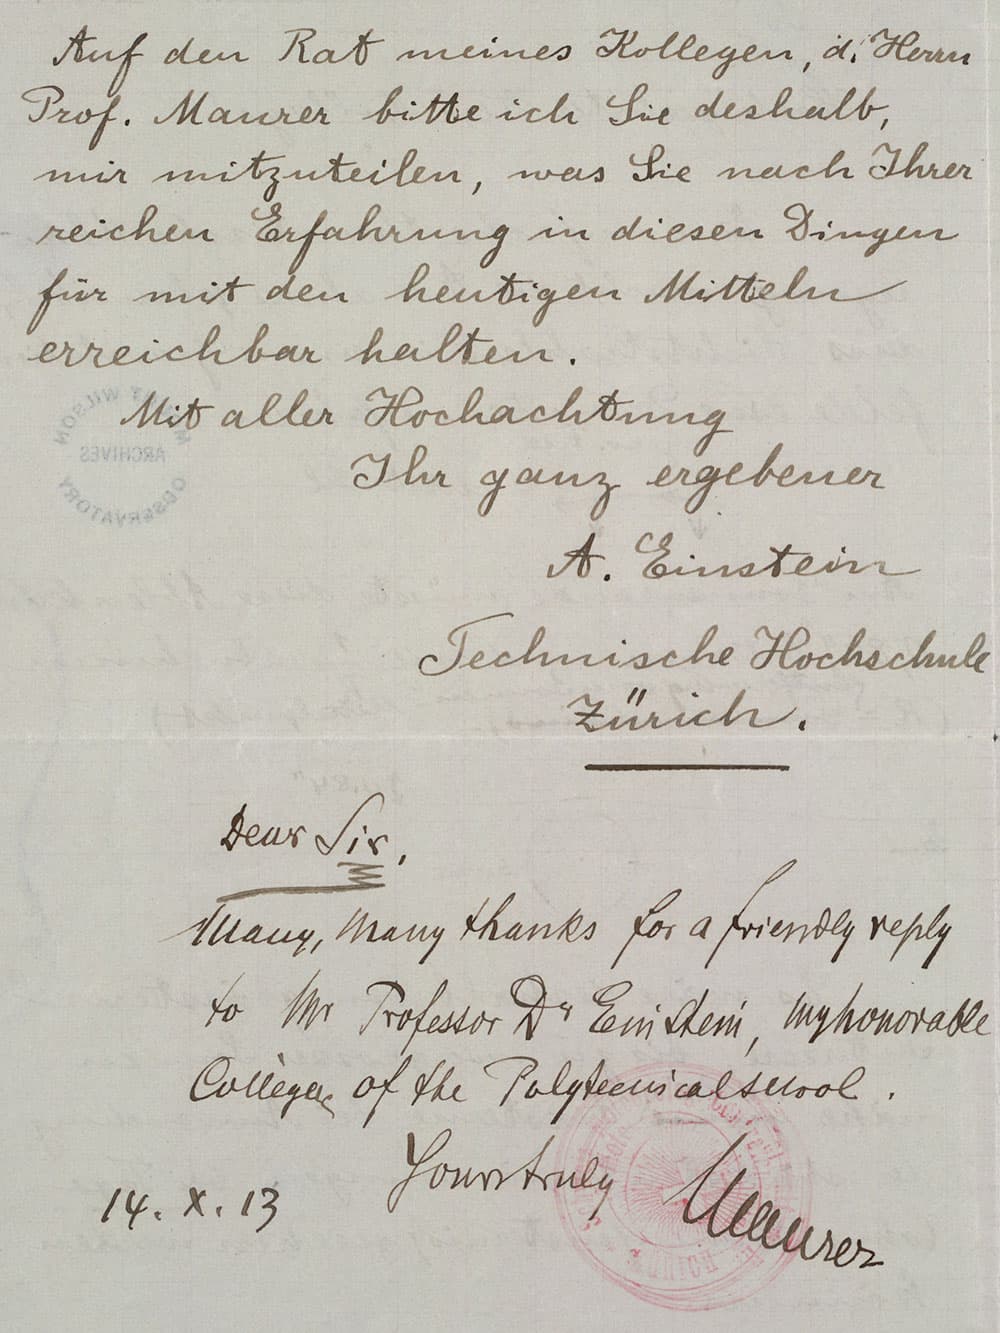 Auf den Rat meines Kollegen, d. Herrn
Prof. Maurer bitte ich Sie deshalb,
mir mitzuteilen, was Sie nach Ihrer
reichen Erfahrung in diesen Dingen
für mit den heutigen Mitteln
erreichbar halten.
Mit aller Hochachtung
Ihr ganz ergebener
A. Einstein
Technische Hochschule
Zürich.
MOUNT WILSON
ARCHIVES
OBSERVATORY
Dear Sir,
Many, many thanks for a friendly reply
to Mr Professor Dr Einstein, my honorable
Collegae of the Polytecnicalschool.
Yours truly
14. X. 13
Maurer